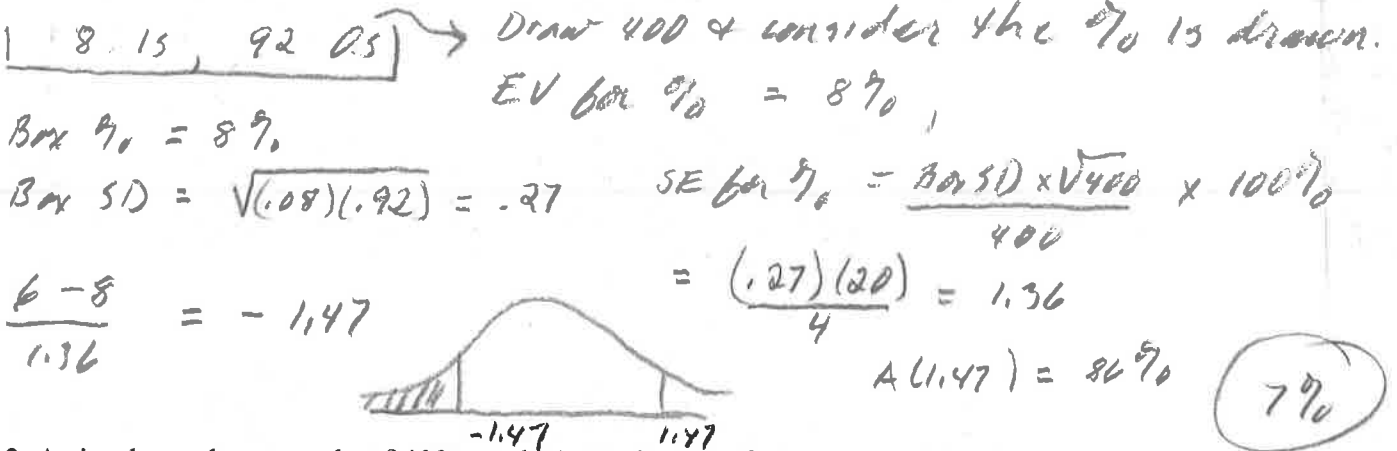 8 1s, 92 0s → Draw 400 & consider the % 1s drawn.
EV for % = 8%
Box % = 8%
Box SD = √(.08)(.92) = .27
SE for % = Box SD x √400 / 400 x 100%
= (.27)(20) / 4 = 1.36
6 - 8 / 1.36 = - 1.47
A(1.47) = 86%
7%
-1.47 1.47